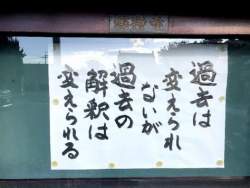 過去は
変えられ
ないが
過去の
解釈は
変えられる